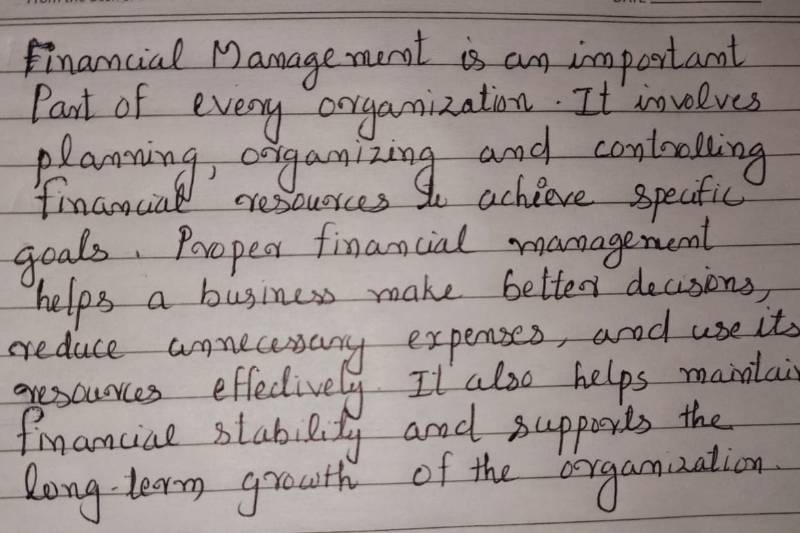 Financial Management is an important
Part of every organization. It involves
planning, organizing and controlling
financial resources to achieve specific
goals. Proper financial management
helps a business make better decisions,
reduce unnecessary expenses, and use its
resources effectively. It also helps maintai
financial stability and supports the
long-term growth of the organization.